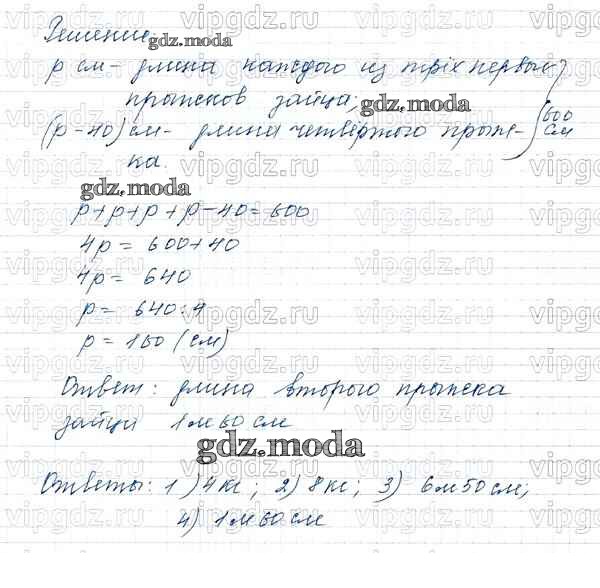 Решение.
р см - длина каждого из трёх первых
прыжков зайца;
(р-40) см - длина четвёртого прыж-
ка.
600
см
р+р+р+р-40=600
4р = 600+40
4р = 640
р = 640:4
р = 160 (см)
Ответ: длина второго прыжка
зайца 1м 60 см
Ответы: 1) 4кг; 2) 8кг; 3) 6м50см;
4) 1м60см
gdz.moda
gdz.moda
gdz.moda
gdz.moda
vipgdz.ru